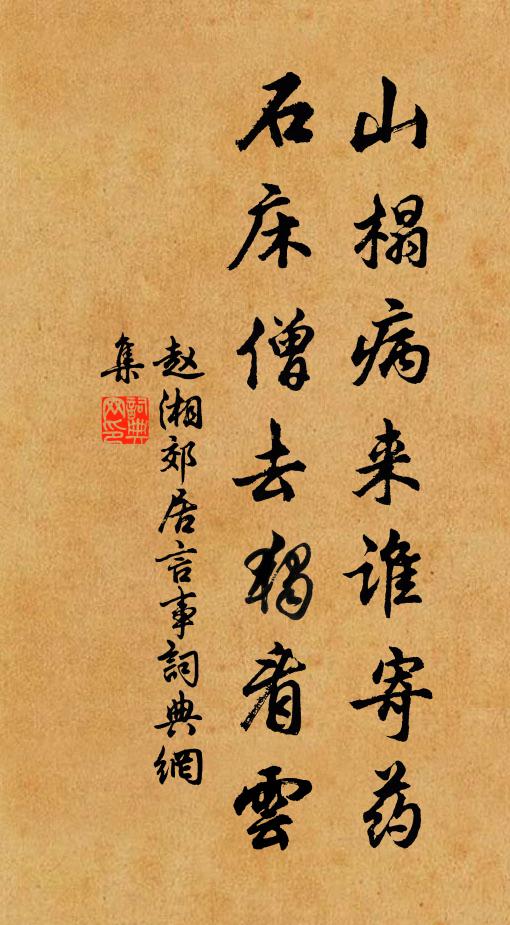 山榻病来谁寄药
石床僧去独看雲
赵湘郊居言事詞典網
集
詞典網印